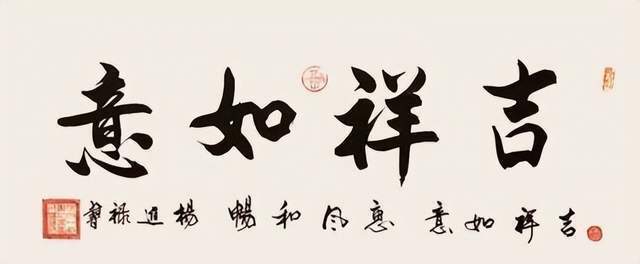 吉祥如意
吉祥如意 惠风和暢 楊進禄書